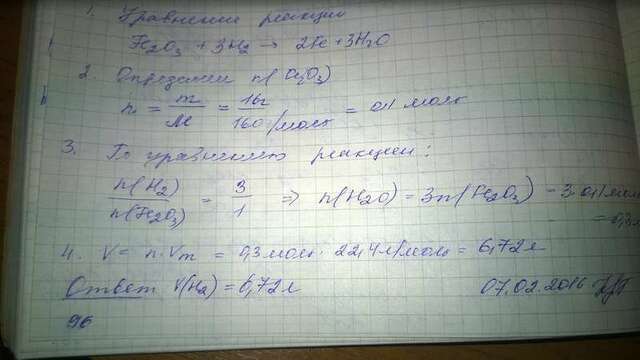 1. Уравнение реакции
Fe₂O₃ + 3H₂ → 2Fe + 3H₂O
2. Определяем n(Fe₂O₃)
n = m/M = 16г/160г/моль = 0,1 моль
3. По уравнению реакции:
n(H₂)/n(Fe₂O₃) = 3/1 ⇒ n(H₂O) = 3n(Fe₂O₃) = 3·0,1моль
= 0,3
4. V = n·Vm = 0,3моль·22,4л/моль = 6,72л
Ответ V(H₂) = 6,72л
07.02.2016
96